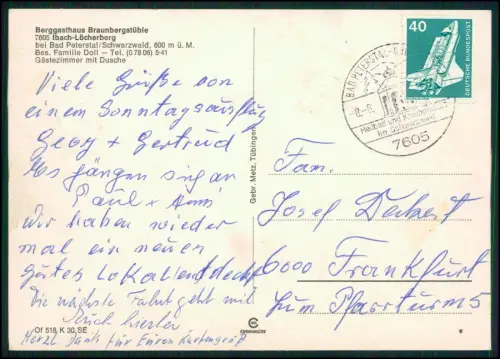 Berggasthaus Braunbergstüble
7605 Ibach-Löcherberg
bei Bad Peterstal/Schwarzwald, 600 m ü. M.
Bes. Familie Doll - Tel. (07806) 541
Gästezimmer mit Dusche
Viele Grüße von
einem Sonntagsausflug
Georg + Gertrud
Es gängen sig an
Paul +
Wir haben wieder
mal ein neuen
gutes Lokal entdeckt
Die nächste Fahrt geht mit
Euch hierher
Herzl. Dank für Euren Kartengruß
Of 518 K 30 SE
Gebr. Metz, Tübingen
40
DEUTSCHE BUNDESPOST
BAD PETERSTAL-
Heilbad und
im Schwarzwald
7605
Fam.
Josef Deckert
6000 Frankfurt
Zum Pfarrturm 5